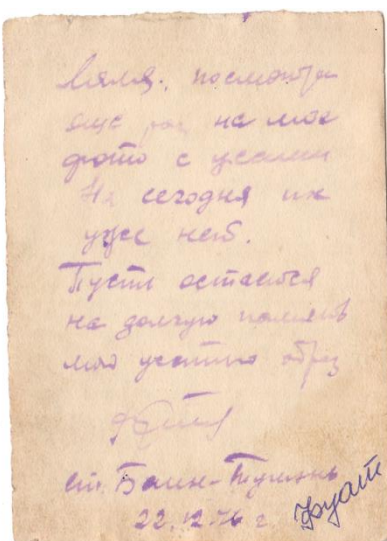 Ляля, посмотри
еще раз на мое
фото с усами
На сегодня их
уже нет.
Пусть останется
на долгую память
мой усатый образ
ст. Баин-Тумэнь
22.12.46 г. Фуат